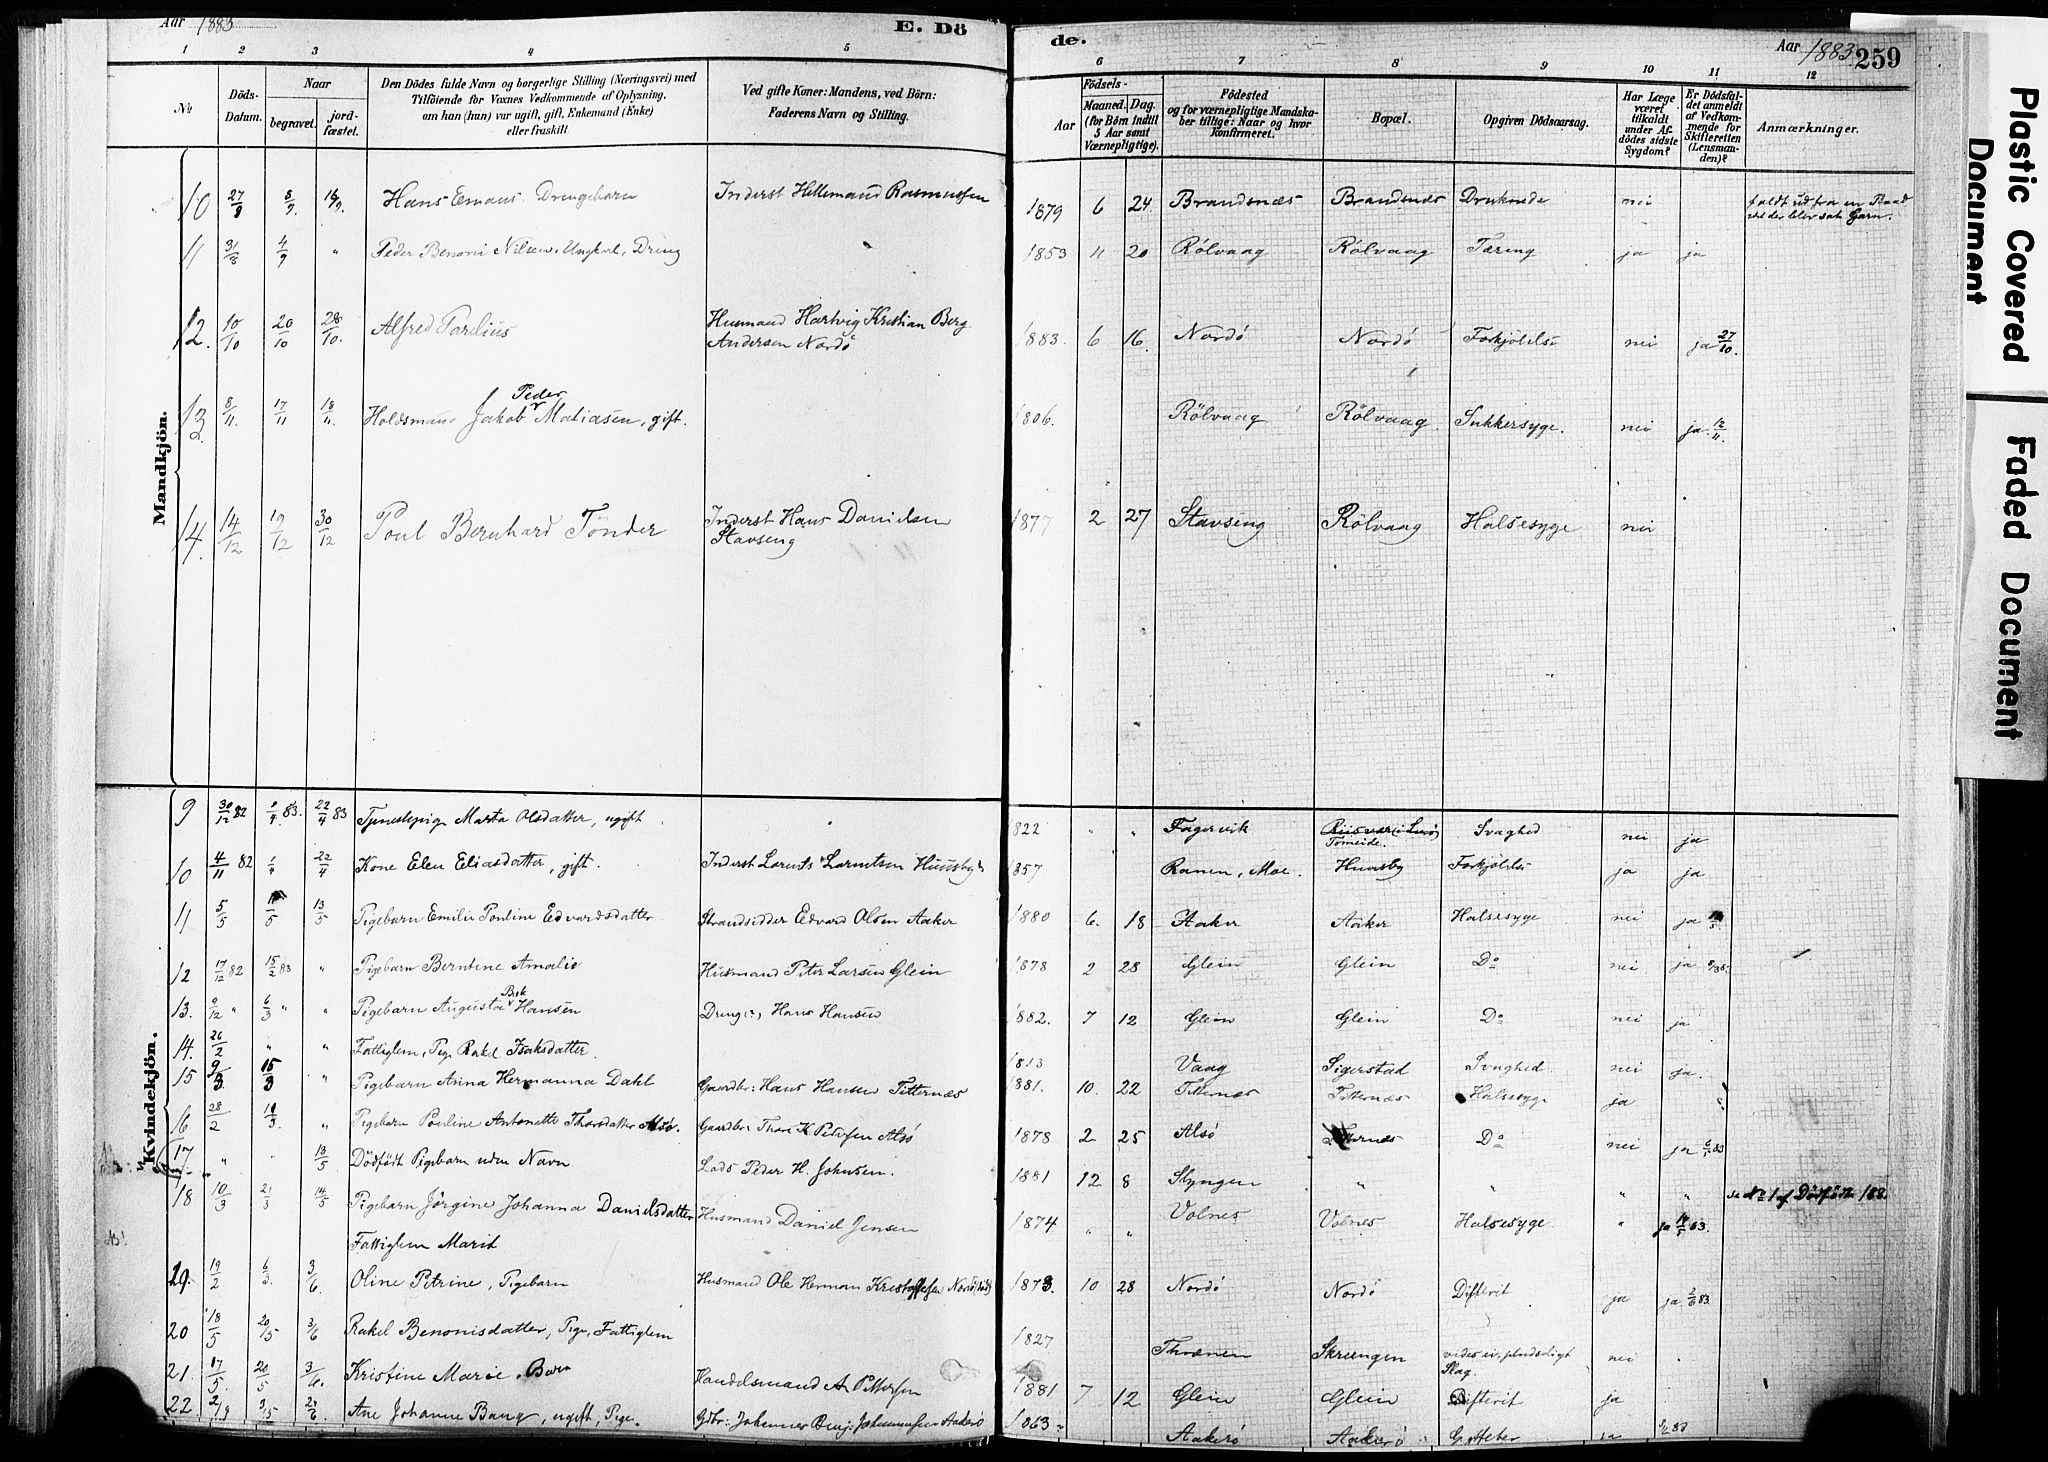 Aar 1883
E. Dö
de.
Aar 1883. 259
1 2 3 4 5
6 7 8 9 10 11 12
№
Döds-Datum.
Naar
begravet.
jord-fæstet.
Den Dödes fulde Navn og borgerlige Stilling (Næringsvei) med
Tilföiende for Voxnes Vedkommende af Oplysning,
om han (hun) var ugift, gift, Enkemand (Enke)
eller fraskilt.
Ved gifte Koner: Mandens, ved Börn:
Faderens Navn og Stilling.
Födsels-
Aar
Maaned. Dag.
(for Börn indtil
5 Aar samt
Værnepligtige).
Födested
og for værnepligtige Mandska-
ber tillige: Naar og hvor
konfirmeret.
Bopæl.
Opgiven Dödsaarsag.
Har Læge
været
tilkaldt
under Af-
dödes sidste
Sygdom?
Er Dödsfal-
det anmeldt
af Vedkom-
mende for
Skifteretten
(Lensman-
den)?
Anmærkninger.
Mandkjön.
10 27/8 8/9 16/9 Hans Emaus Drengebarn Inderst Hellemand Rasmussen 1879 6 24 Brandsnæs Brandsnæs Druknede nei faldt ud fra en Baad
ved der blev sat Garn.
11 31/8 4/9 " Peder Benoni Nilsen, Ungkarl, Dreng 1853 11 20 Rölvaag Rölvaag Tæring ja ja
12. 10/10 20/10 28/10. Alfred Parelius Husmand Hartvig Kristian Berg
Andersen Nordö 1883. 6 16. Nordö Nordö Forkjölelse nei ja 27/10.
13. 8/11 17/11 18/11. Holdsmand Jakob Peder Matiasen, gift. 1806. Rölvaag Rölvaag. Sukkersyge. nei ja 12/11.
14. 14/12 19/12 30/12 Poul Bernhard Tönder Inderst Hans Danielsen
Stavseng 1877 2 27 Stavseng Rölvaag Halsesyge nei
Kvindekjön.
9 30/12 82 /4 83. 22/4 83 Tjenestepige Marta Olsdatter, ugift 1822 " " Fagervik Riisvær (i Lurö)
Tomeide. Svaghed nei ja
10 4/11 82 22/4 Kone Elen Eliasdatter, gift. Inderst Lorents Lorentsen Huusby 1857 Ranen, Moe. Huusby Forkjölelse ja ja
11 5/5 /5 13/5 Pigebarn Emilie Pouline Edvardsdatter Strandsidder Edvard Olsen Aaker 1880 6. 18 Aaker Aaker Halsesyge nei ja
12 17/12 82 15/2 83 " Pigebarn Berntine Amalie Husmand Peter Larsen Glein 1878 2 28 Glein Glein Do nei ja
13. /12 " 6/3 " " Pigebarn Augusta Bek Hansen Dreng, Hans Hansen 1882. 7 12 Glein Glein Do nei ja
14. 26/2 " " Fattiglem, Pige Rakel Isaksdatter. 1813 Vaag Sigerstad Svaghed nei ja.
15 9/3 15/3 " Pigebarn Anna Hermanna Dahl Gaardbr: Hans Hansen Titternæs 1881. 10. 22 Titternæs Titternæs Halsesyge ja
16 28/2 /3. " Pigebarn Pouline Antonette Thorsdatter Alsö. Gaardbr: Thor K Pedersen Alsö 1878 2 25 Alsö Do nei ja
17 " " 13/5 Dödfödt Pigebarn uden Navn Lods Peder H. Johnsen. 1881 12 8 Slyngen " " " " se No 1 af Dödfödte 188.
18 10/3 21/3 14/5 Pigebarn Jörgine Johanna Danielsdatter Husmand Daniel Jensen 1874 " " Volnes Volnes Halsesyge " ja 83.
Fattiglem Marit
29. 19/2 6/3. 3/6. Oline Petrine, Pigebarn Husmand Ole Herman Kristoffersen Nordö 1873. 10 28 Nordö Nordö Difterit ja ja 2/6 83.
20 18/5 20/5 3/6 Rakel Benonisdatter, Pige, Fattiglem 1827 Thrænen Skreengen vides ei, pludseligt
Slag. nei
21. 17/5. 20/5 3/6. Kristine Marie, Barn Handelsmand A. Pettersen 1881 7 12 Glein Glein Difterit ja
22 Ane Johanne Bang, ugift, Pige. Gdbr: Johannes Benj: Johannessen Aakerö 1863 Aakerö Aakerö ja
Plastic Covered
Document
Faded Document